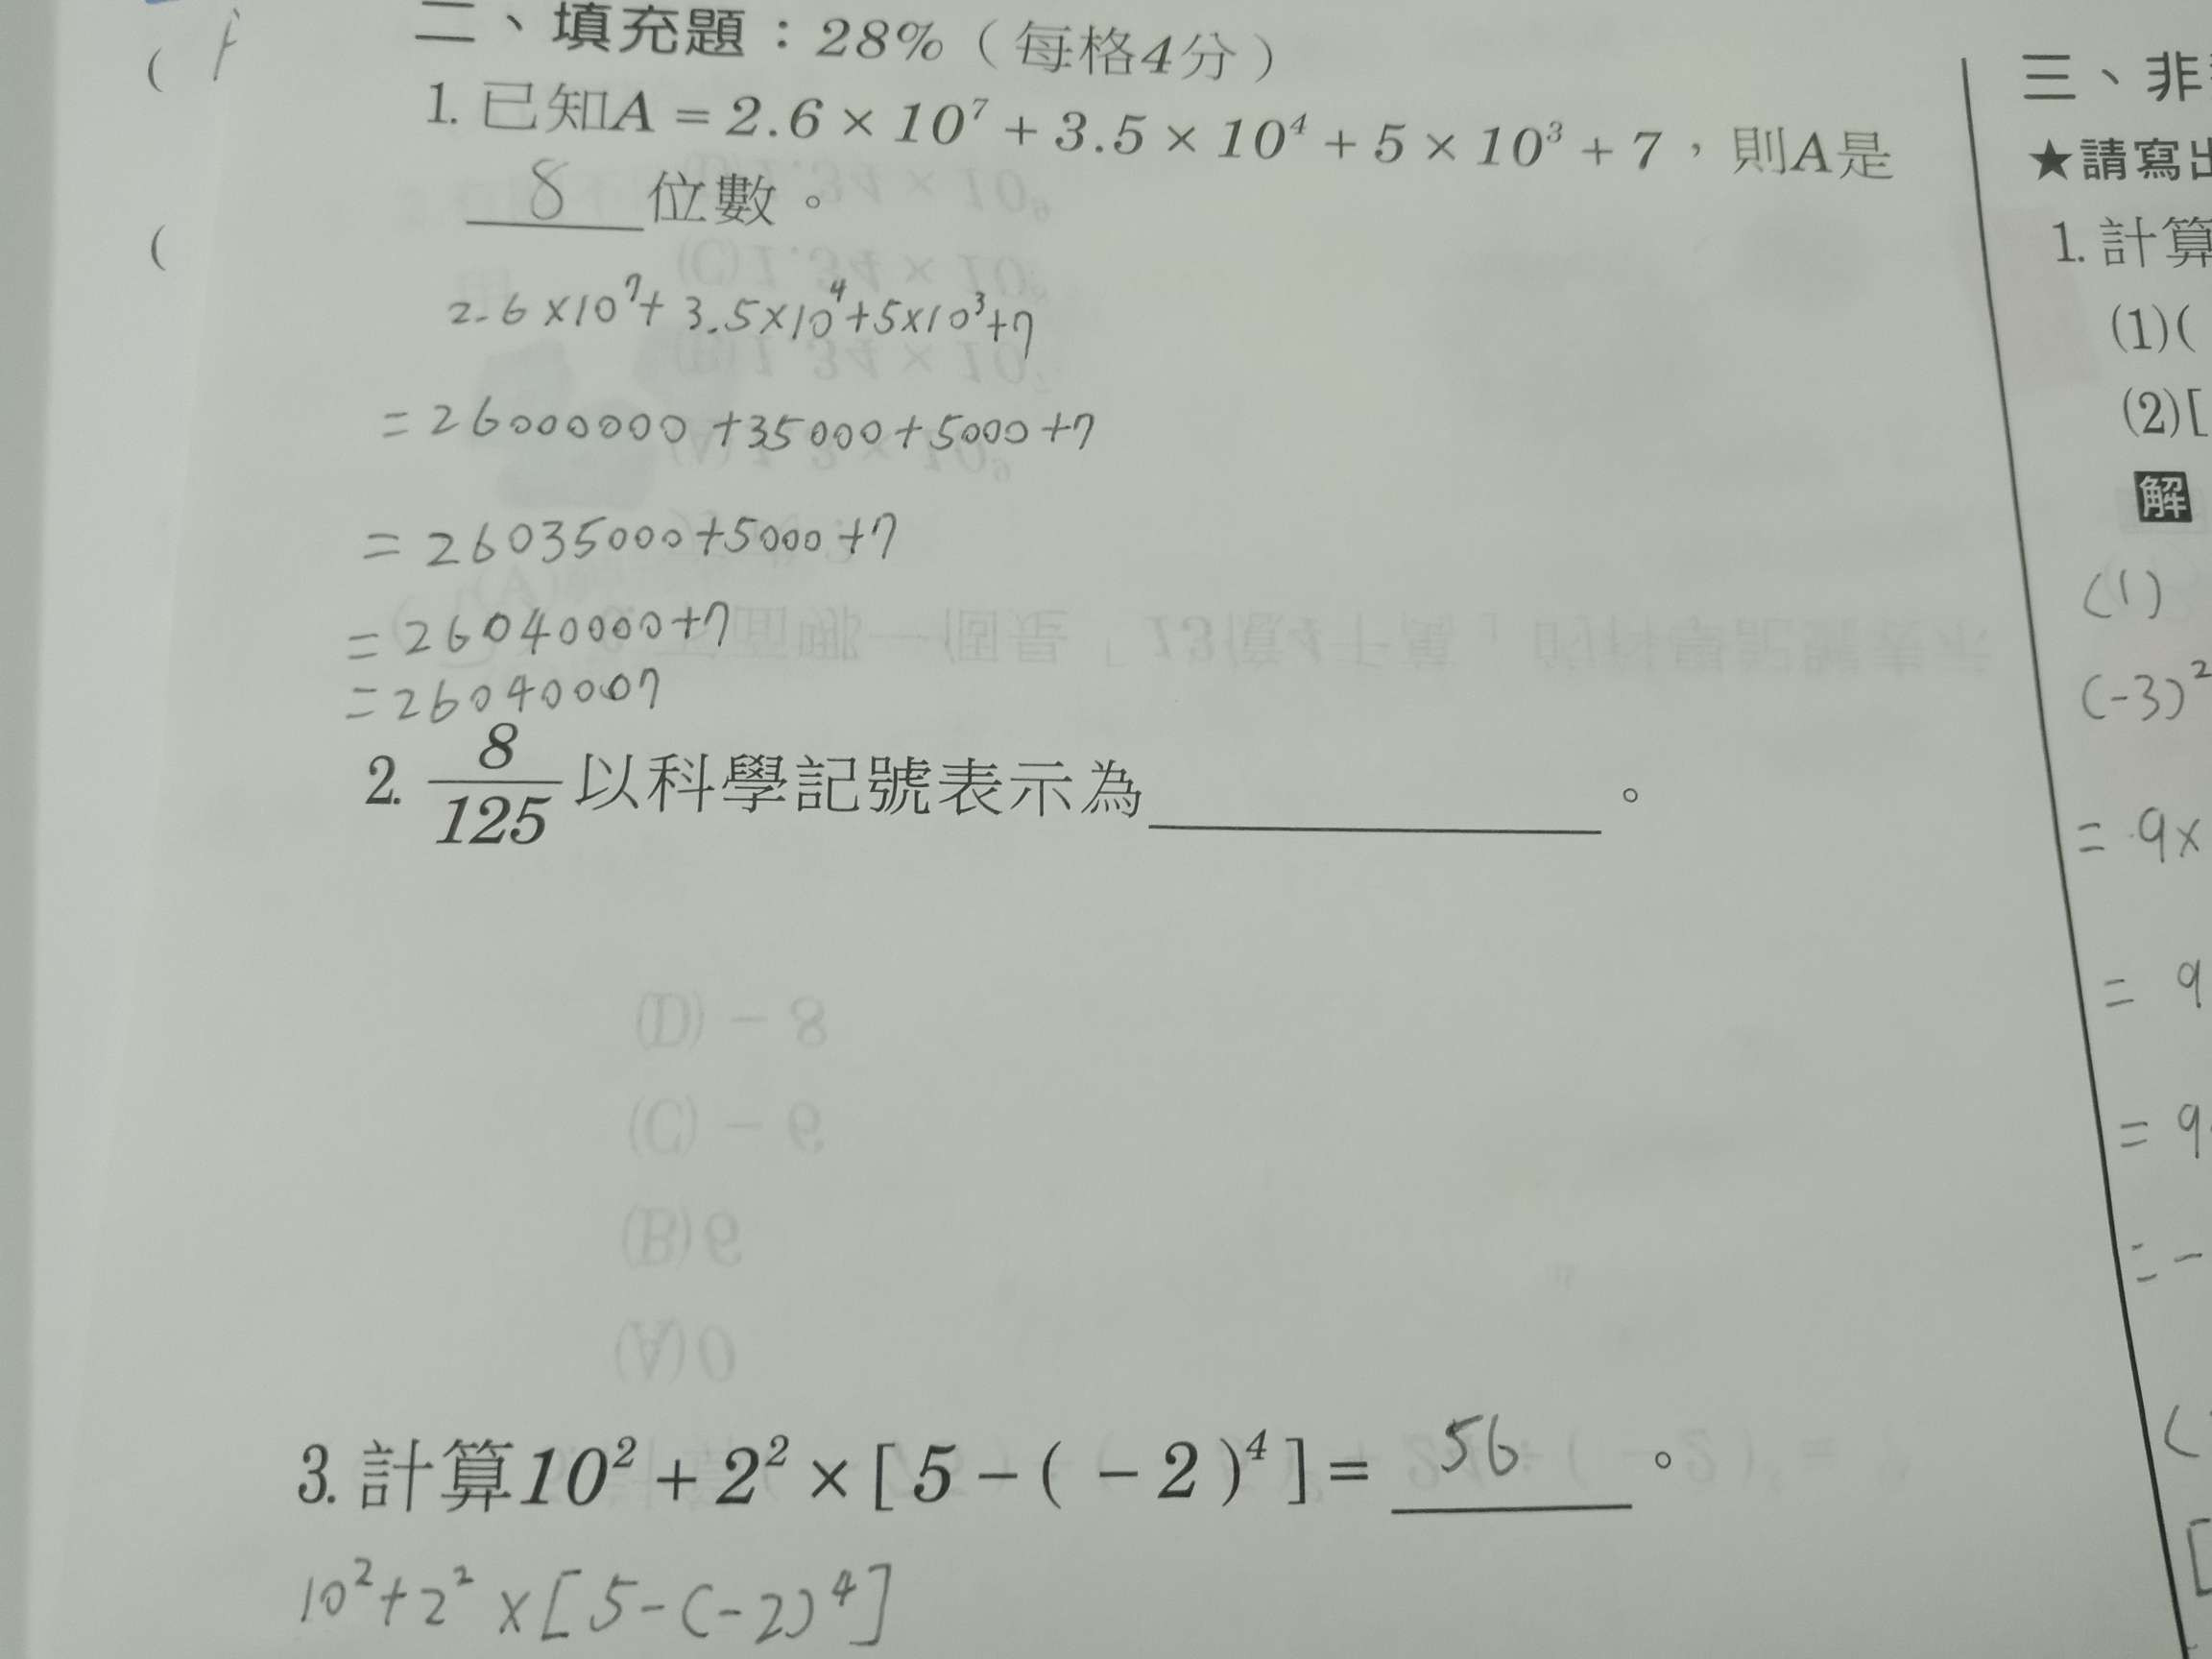 二、填充題：28%（每格4分）
1. 已知A = 2.6 × 10⁷ + 3.5 × 10⁴ + 5 × 10³ + 7，則A是
8 位數。
2.6 ×10⁷+ 3.5×10⁴+5×10³+7
= 26000000 +35000+5000+7
= 26035000+5000+7
= 26040000+7
= 26040007
2. 8/125 以科學記號表示為＿＿＿＿＿＿。
3. 計算10² + 2² × [ 5 − ( − 2 )⁴ ] = 56 。
10²+2² ×[5-(-2)⁴]
三、非
★請寫出
1. 計算
(1)(
(2)[
解
(1)
(-3)²
= 9×
= 9
= 9
= -
(
[